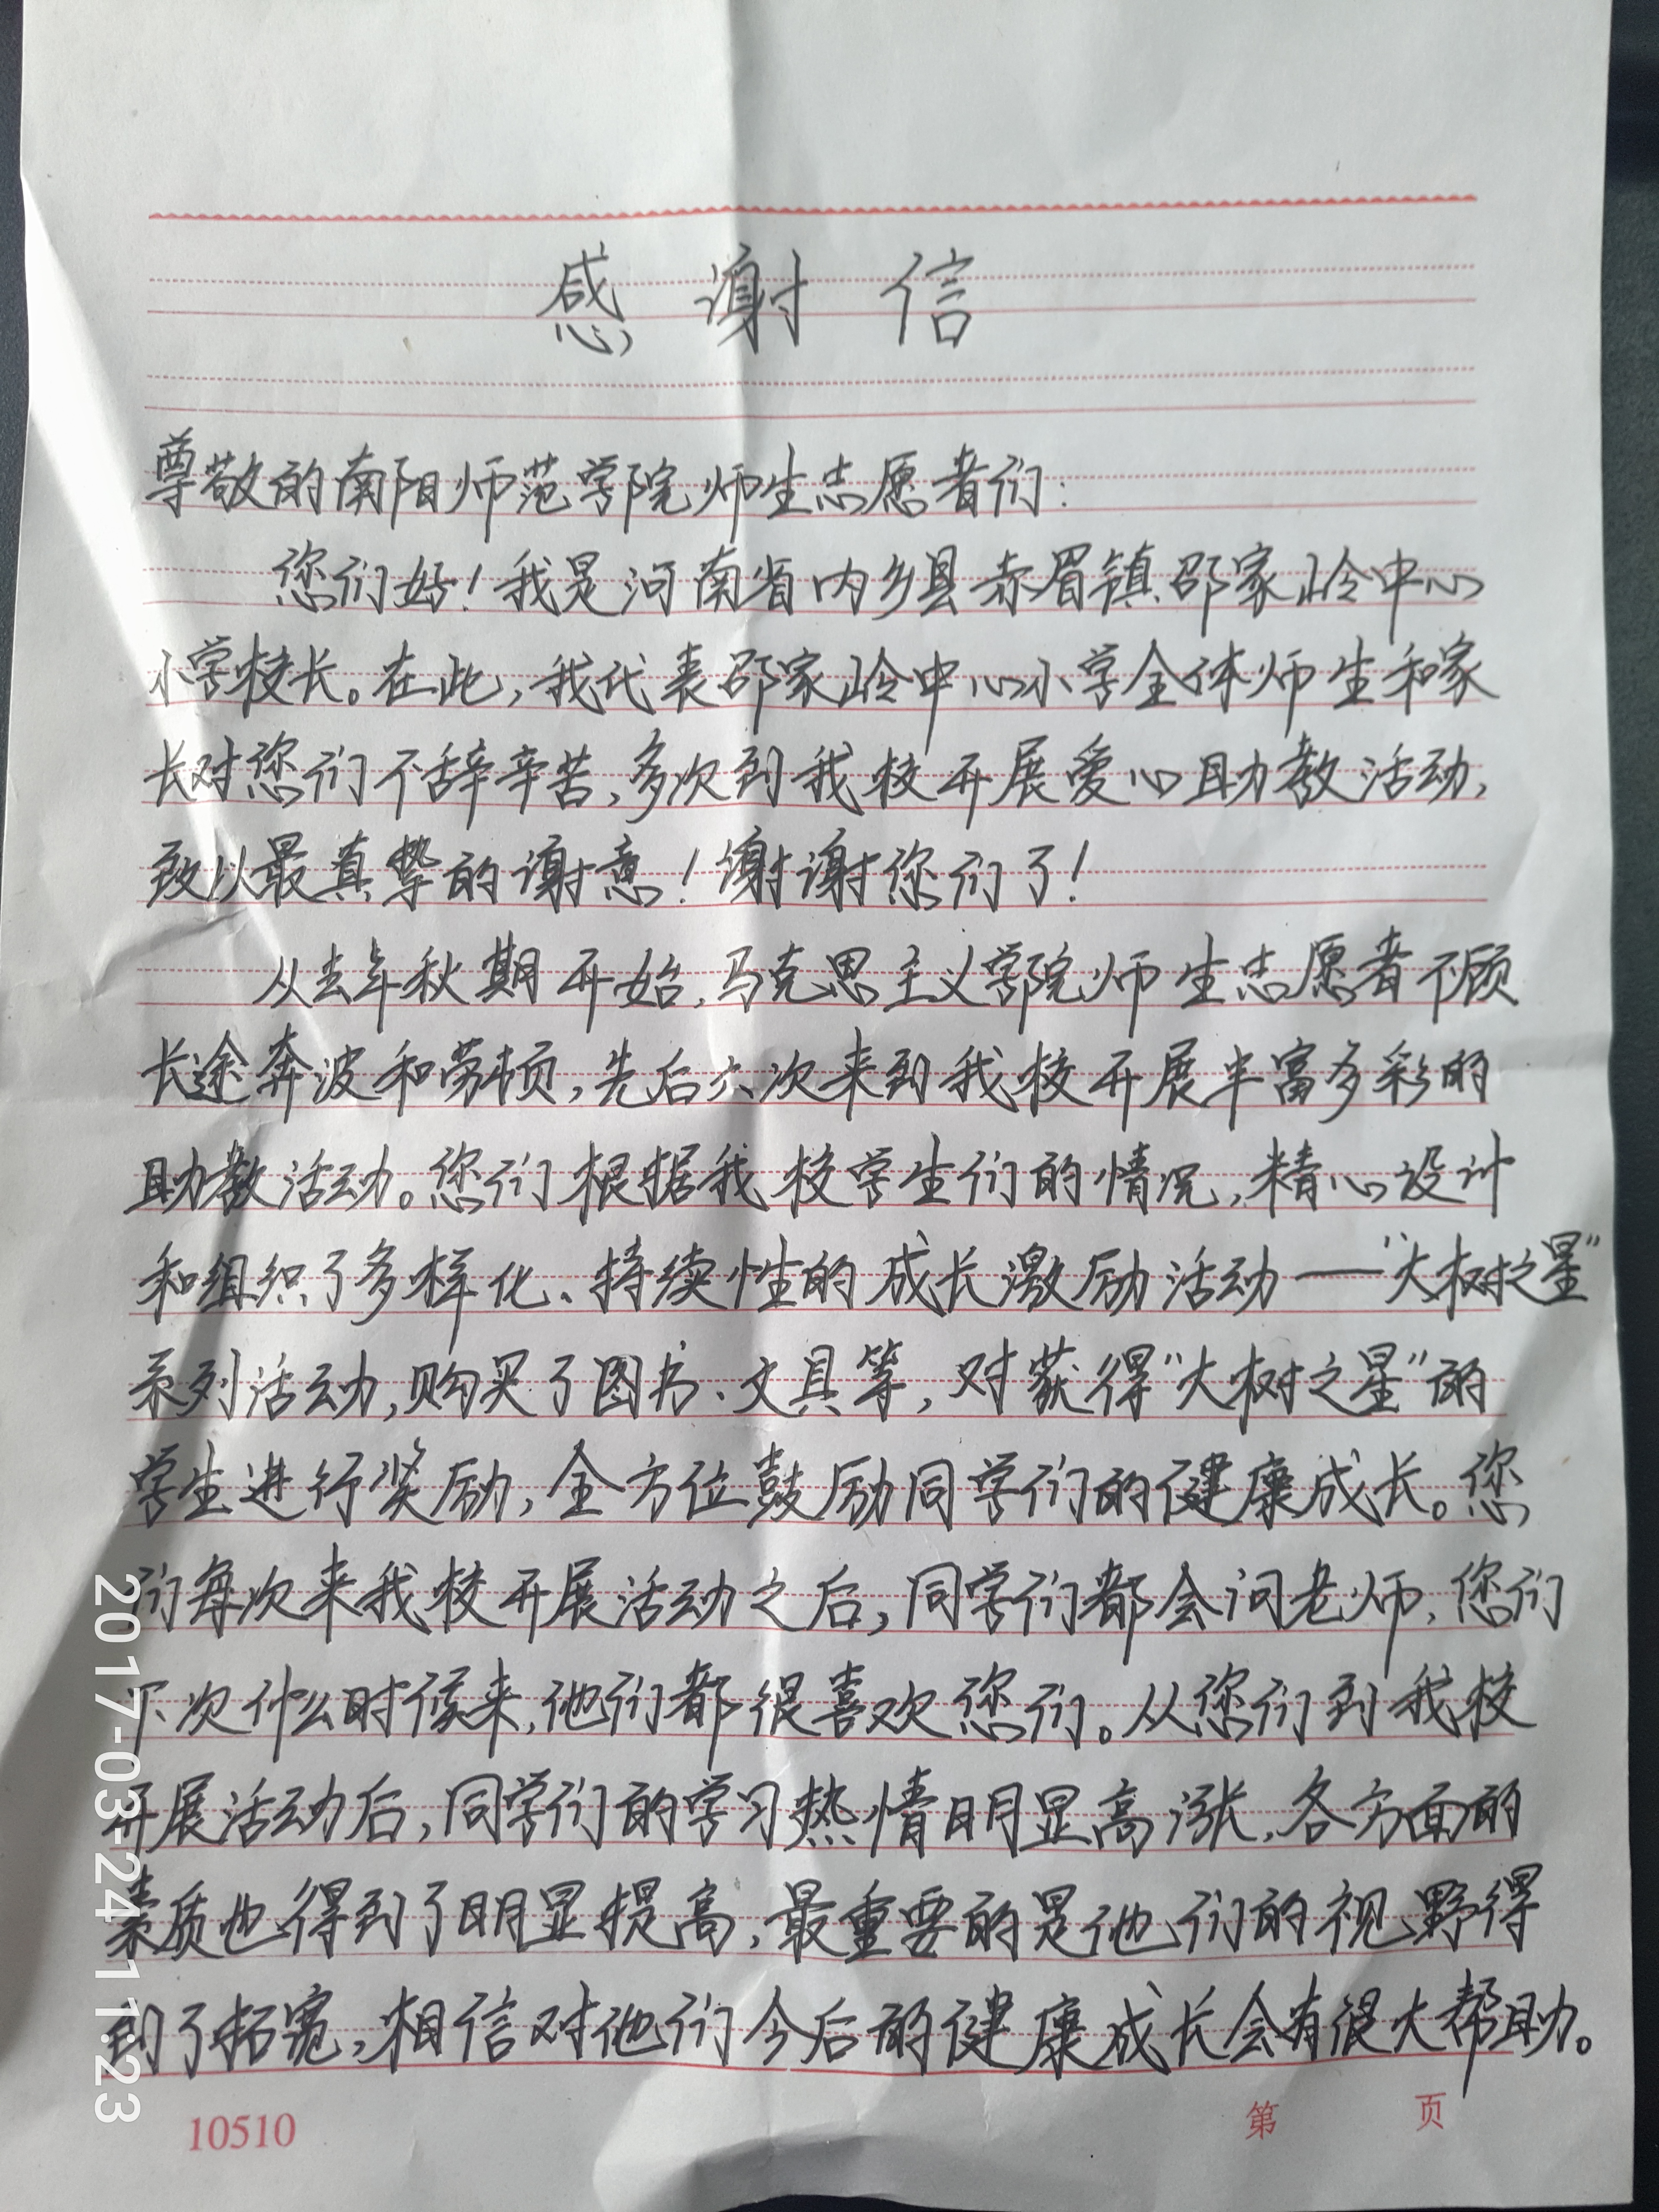 感谢信
尊敬的南阳师范学院师生志愿者们：
您们好！我是河南省内乡县赤眉镇邵家岭中心
小学校长。在此，我代表邵家岭中心小学全体师生和家
长对您们不辞辛苦，多次到我校开展爱心助教活动，
致以最真挚的谢意！谢谢您们了！
从去年秋期开始，马克思主义学院师生志愿者不顾
长途奔波和劳顿，先后六次来到我校开展丰富多彩的
助教活动。您们根据我校学生们的情况，精心设计
和组织了多样化、持续性的成长激励活动——“大树之星”
系列活动，购买了图书、文具等，对获得“大树之星”的
学生进行奖励，全方位鼓励同学们的健康成长。您
们每次来我校开展活动之后，同学们都会问老师，您们
下次什么时候来，他们都很喜欢您们。从您们到我校
开展活动后，同学们的学习热情明显高涨，各方面的
素质也得到了明显提高，最重要的是他们的视野得
到了拓宽，相信对他们今后的健康成长会有很大帮助。
10510 第 页
2017-03-24 11:23